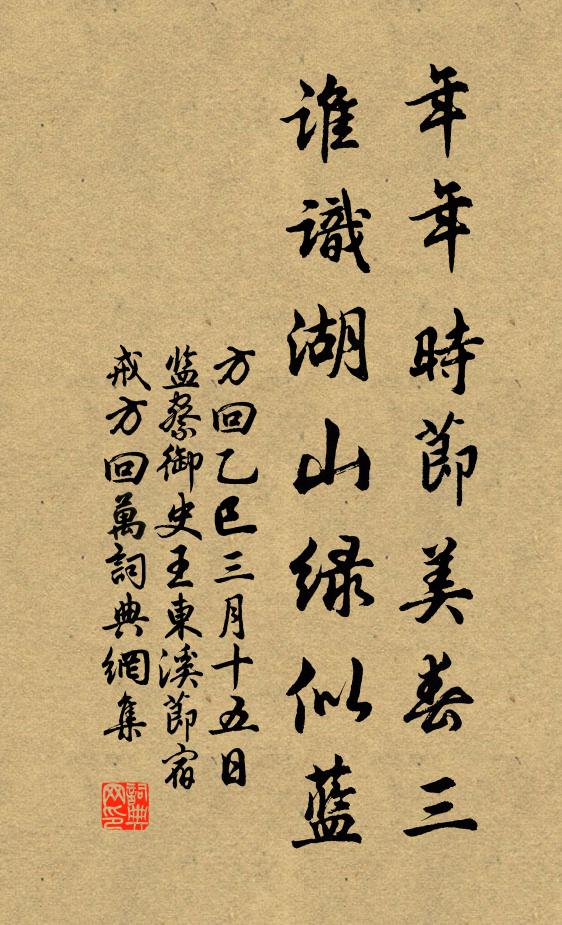 年年時節美春三
誰識湖山緑似藍
方回乙巳三月十五日
監察御史王東溪節宿
戒方回萬詞典網集
詞典
网印